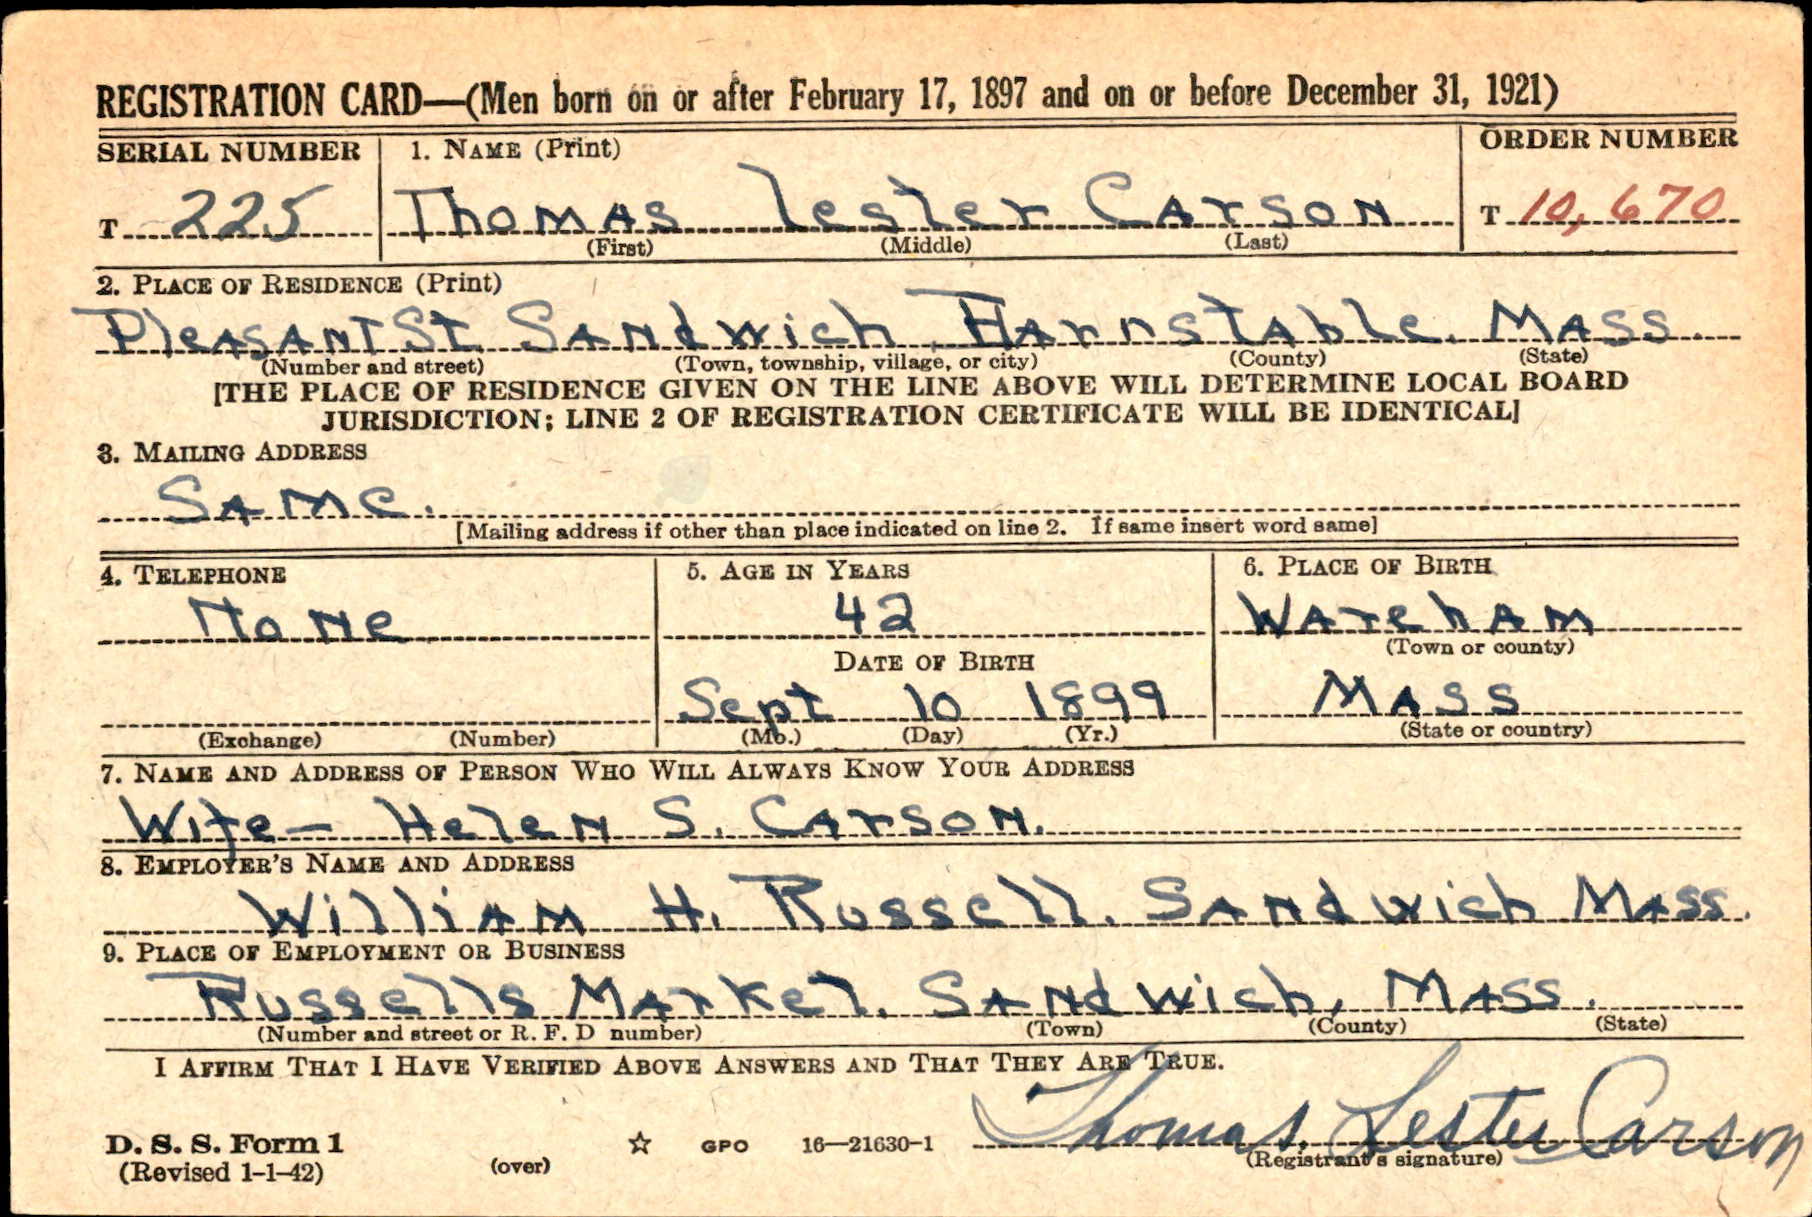 REGISTRATION CARD—(Men born on or after February 17, 1897 and on or before December 31, 1921)
SERIAL NUMBER 1. NAME (Print) ORDER NUMBER
T 225 Thomas Lester Carson T 10,670
(First) (Middle) (Last)
2. PLACE OF RESIDENCE (Print)
Pleasant St Sandwich Barnstable. Mass.
(Number and street) (Town, township, village, or city) (County) (State)
[THE PLACE OF RESIDENCE GIVEN ON THE LINE ABOVE WILL DETERMINE LOCAL BOARD
JURISDICTION; LINE 2 OF REGISTRATION CERTIFICATE WILL BE IDENTICAL]
3. MAILING ADDRESS
Same.
[Mailing address if other than place indicated on line 2. If same insert word same]
4. TELEPHONE 5. AGE IN YEARS 6. PLACE OF BIRTH
None 42 Wareham
(Town or county)
DATE OF BIRTH
Sept 10 1899 Mass
(Exchange) (Number) (Mo.) (Day) (Yr.) (State or country)
7. NAME AND ADDRESS OF PERSON WHO WILL ALWAYS KNOW YOUR ADDRESS
Wife— Helen S. Carson.
8. EMPLOYER'S NAME AND ADDRESS
William H. Russell. Sandwich Mass.
9. PLACE OF EMPLOYMENT OR BUSINESS
Russells Market. Sandwich, Mass.
(Number and street or R. F. D number) (Town) (County) (State)
I AFFIRM THAT I HAVE VERIFIED ABOVE ANSWERS AND THAT THEY ARE TRUE.
Thomas Lester Carson
D. S. S. Form 1 ☆ GPO 16—21630-1 (Registrant's signature)
(Revised 1-1-42) (over)